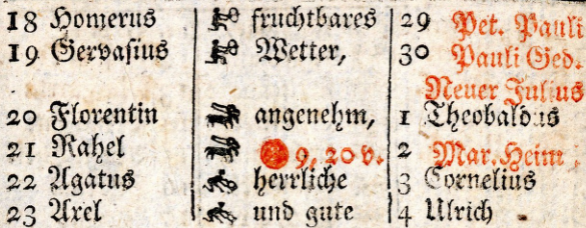 18 Homerus fruchtbares 29 Pet. Pauli
19 Gervasius Wetter, 30 Pauli Ged.
Neuer Julius
20 Florentin angenehm, 1 Theobaldus
21 Rahel 9, 20 v. 2 Mar. Heim
22 Agatus herrliche 3 Cornelius
23 Axel und gute 4 Ulrich